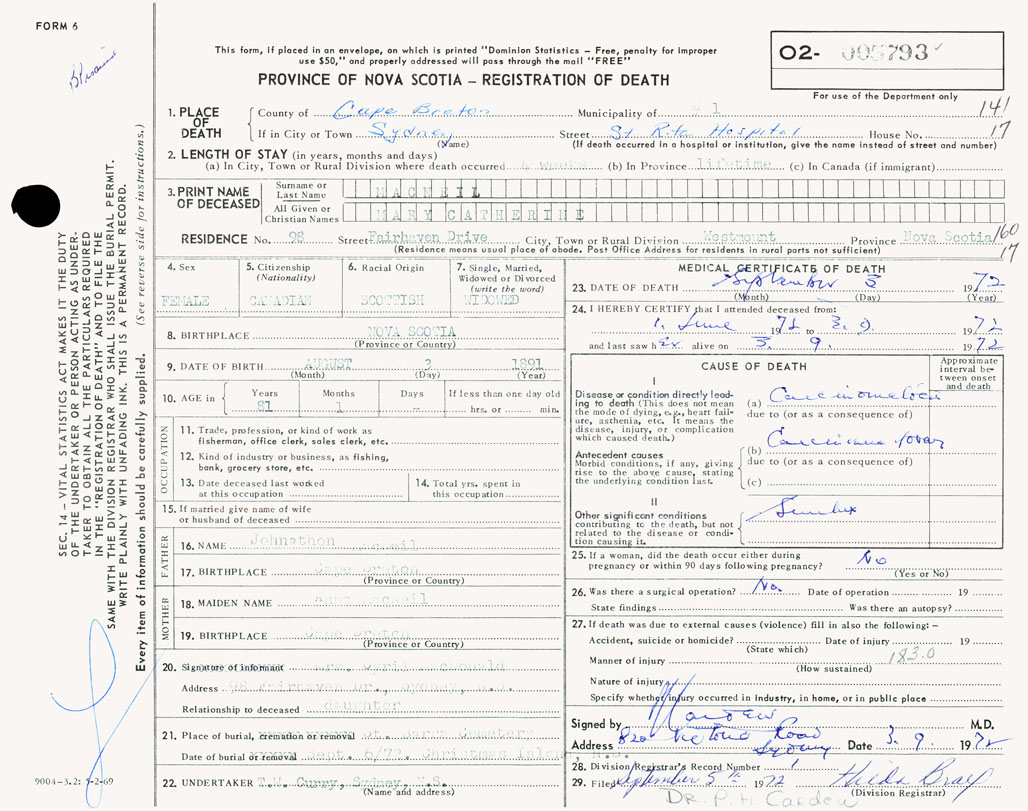 FORM 6
This form, if placed in an envelope, on which is printed "Dominion Statistics – Free, penalty for improper
use $50," and properly addressed will pass through the mail "FREE"
PROVINCE OF NOVA SCOTIA – REGISTRATION OF DEATH
02- 005793
For use of the Department only
141
17
1. PLACE OF DEATH
County of Cape Breton Municipality of #1
If in City or Town Sydney Street St Rita Hospital House No.
(Name) (If death occurred in a hospital or institution, give the name instead of street and number)
2. LENGTH OF STAY (in years, months and days)
(a) In City, Town or Rural Division where death occurred 4 weeks (b) In Province lifetime (c) In Canada (if immigrant)
3. PRINT NAME OF DECEASED
Surname or Last Name MACNEIL
All Given or Christian Names MARY CATHERINE
RESIDENCE No. 98 Street Fairhaven Drive City, Town or Rural Division Westmount Province Nova Scotia
(Residence means usual place of abode. Post Office Address for residents in rural parts not sufficient)
160
17
4. Sex FEMALE
5. Citizenship (Nationality) CANADIAN
6. Racial Origin SCOTTISH
7. Single, Married, Widowed or Divorced (write the word) WIDOWED
8. BIRTHPLACE NOVA SCOTIA
(Province or Country)
9. DATE OF BIRTH AUGUST 3 1891
(Month) (Day) (Year)
10. AGE in Years 81 Months 1 Days – If less than one day old hrs. or min.
OCCUPATION
11. Trade, profession, or kind of work as
fisherman, office clerk, sales clerk, etc.
12. Kind of industry or business, as fishing,
bank, grocery store, etc.
13. Date deceased last worked
at this occupation
14. Total yrs. spent in
this occupation
15. If married give name of wife
or husband of deceased
FATHER
16. NAME Johnathon Macneil
17. BIRTHPLACE Cape Breton
(Province or Country)
MOTHER
18. MAIDEN NAME Macneil
19. BIRTHPLACE Cape Breton
(Province or Country)
20. Signature of informant Mrs.
Address 98 Fairhaven Dr., Sydney, N.S.
Relationship to deceased daughter
21. Place of burial, cremation or removal Cemetery
Date of burial or removal Sept. 6/72 Christmas Island, N.S.
22. UNDERTAKER T.W. Curry, Sydney, N.S.
(Name and address)
MEDICAL CERTIFICATE OF DEATH
23. DATE OF DEATH September 3 1972
(Month) (Day) (Year)
24. I HEREBY CERTIFY that I attended deceased from:
1. June 1972 to 3. 9. 1972
and last saw her alive on 3. 9. 1972
CAUSE OF DEATH
Approximate interval between onset and death
I
Disease or condition directly leading to death (This does not mean the mode of dying, e.g., heart failure, asthenia, etc. It means the disease, injury, or complication which caused death.)
(a)
due to (or as a consequence of)
Antecedent causes
Morbid conditions, if any, giving rise to the above cause, stating the underlying condition last.
(b) Carcinoma ovary
due to (or as a consequence of)
(c)
II
Other significant conditions
contributing to the death, but not related to the disease or condition causing it.
25. If a woman, did the death occur either during
pregnancy or within 90 days following pregnancy? No
(Yes or No)
26. Was there a surgical operation? No Date of operation 19
State findings Was there an autopsy?
27. If death was due to external causes (violence) fill in also the following: –
Accident, suicide or homicide? Date of injury 19
(State which)
Manner of injury 183.0
(How sustained)
Nature of injury
Specify whether injury occurred in industry, in home, or in public place
Signed by M.D.
Address Victoria Road
Sydney Date 3. 9. 1972
28. Division Registrar's Record Number 1
29. Filed September 5th 1972
(Division Registrar)
Dr. P. H. Carden
SEC. 14 – VITAL STATISTICS ACT MAKES IT THE DUTY
OF THE UNDERTAKER OR PERSON ACTING AS UNDER-
TAKER TO OBTAIN ALL THE PARTICULARS REQUIRED
IN THE "REGISTRATION OF DEATH" AND TO FILE THE
SAME WITH THE DIVISION REGISTRAR WHO SHALL ISSUE THE BURIAL PERMIT.
WRITE PLAINLY WITH UNFADING INK. THIS IS A PERMANENT RECORD.
Every item of information should be carefully supplied. (See reverse side for instructions.)
9004-3.2: 5-2-69